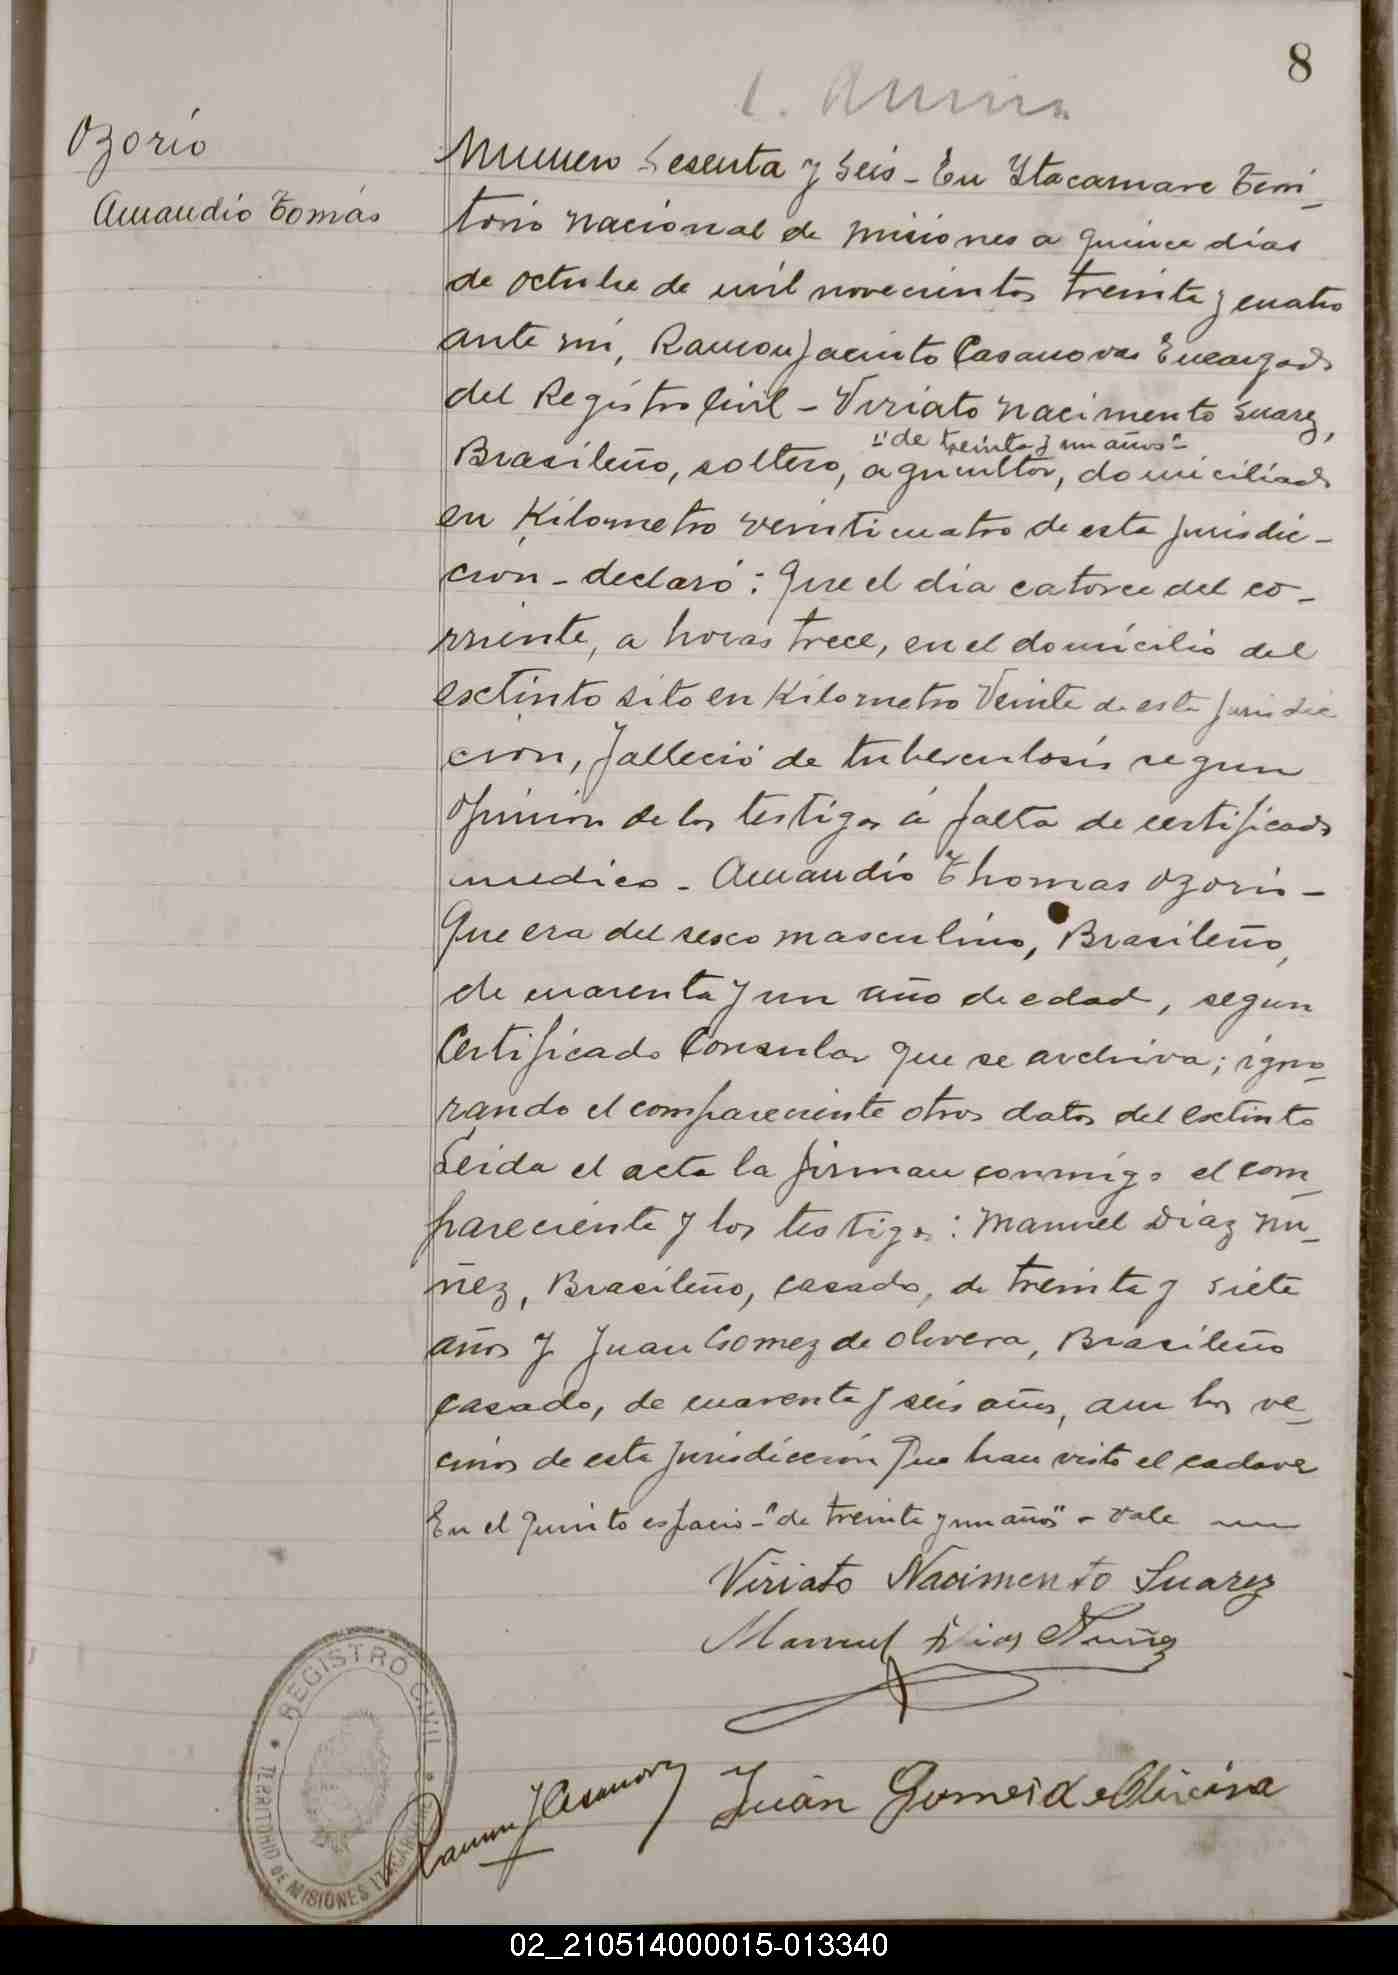 8
Ozorio
Amandio Tomás
Numero Sesenta y Seis - En Itacaruare Terri_
torio nacional de Misiones a quince días
de octubre de mil novecientos treinta y cuatro
ante mí, Ramon Jacinto Casanovas Encargado
del Registro Civil - Viriato nacimento Suarez,
"de treinta y un años"
Brasileño, soltero, agricultor, domiciliado
en Kilometro veinticuatro de esta jurisdic-
ción - declaró: Que el día catorce del co-
rriente, a horas trece, en el domicilio del
extinto sito en Kilometro Veinte de esta jurisdic
ción, falleció de tuberculosis segun
opinion de los testigos á falta de certificado
medico - Amandio Thomas Ozorio -
Que era del sexo masculino, Brasileño,
de cuarenta y un año de edad, segun
Certificado Consular que se archiva; igno_
rando el compareciente otros datos del extinto
Leida el acta la firman conmigo el com_
pareciente y los testigos: Manuel Diaz Nu_
ñez, Brasileño, casado, de treinta y siete
años y Juan Gomez de Olivera, Brasileño
casado, de cuarenta y seis años, ambos ve_
cinos de esta jurisdicción que han visto el cadaver
En el quinto espacio - "de treinta y un años" - Vale
Viriato Nacimento Suarez
Manuel Dias Nuñez
Juan Gomes de Oliveira
Ramon J Casanovas
REGISTRO CIVIL
TERRITORIO DE MISIONES
02_210514000015-013340